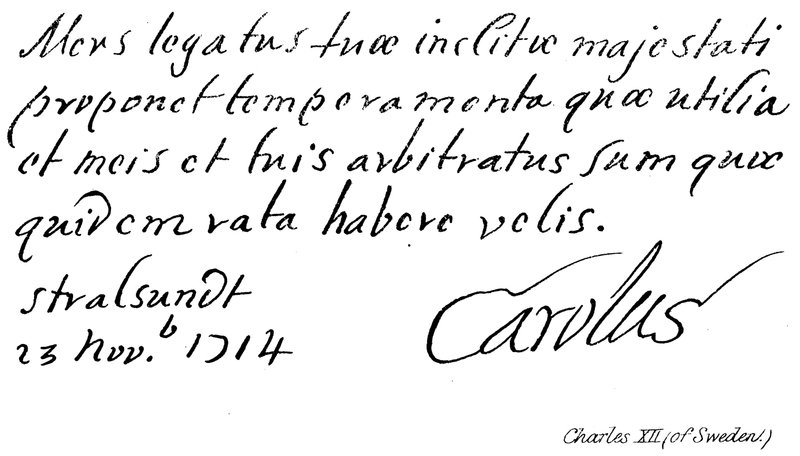 Mers legatus tuæ inclitæ majestati
proponet temperamenta quæ utilia
et meis et tuis arbitratus sum quæ
quidem rata habere velis.
stralsundt
23 Nov.b 1714
Carolus
Charles XII (of Sweden.)